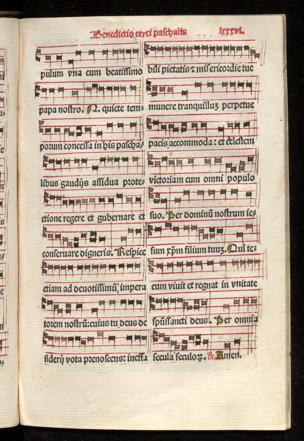 Benedictio cerei paschalis ... lxxxvi.
pulum vna cum beatissimo
papa nostro. N. quiete tem-
porum concessa in his pascha-
libus gaudijs assidua prote-
ctione regere et gubernare et
conseruare digneris. Respice
etiam ad deuotissimū impera
torem nostrū: cuius tu deus de
siderij vota prenoscens: ineffa
bili pietatis et misericordie tue
munere tranquillū perpetue
pacis accommoda: et celestem
victoriam cum omni populo
suo. Per dominū nostrum ie-
sum xp̄m filium tuuȝ. Qui te-
cum viuit et regnat in vnitate
sp̄ussancti deus. Per omnia
secula seculoꝝ. ℟. Amen.